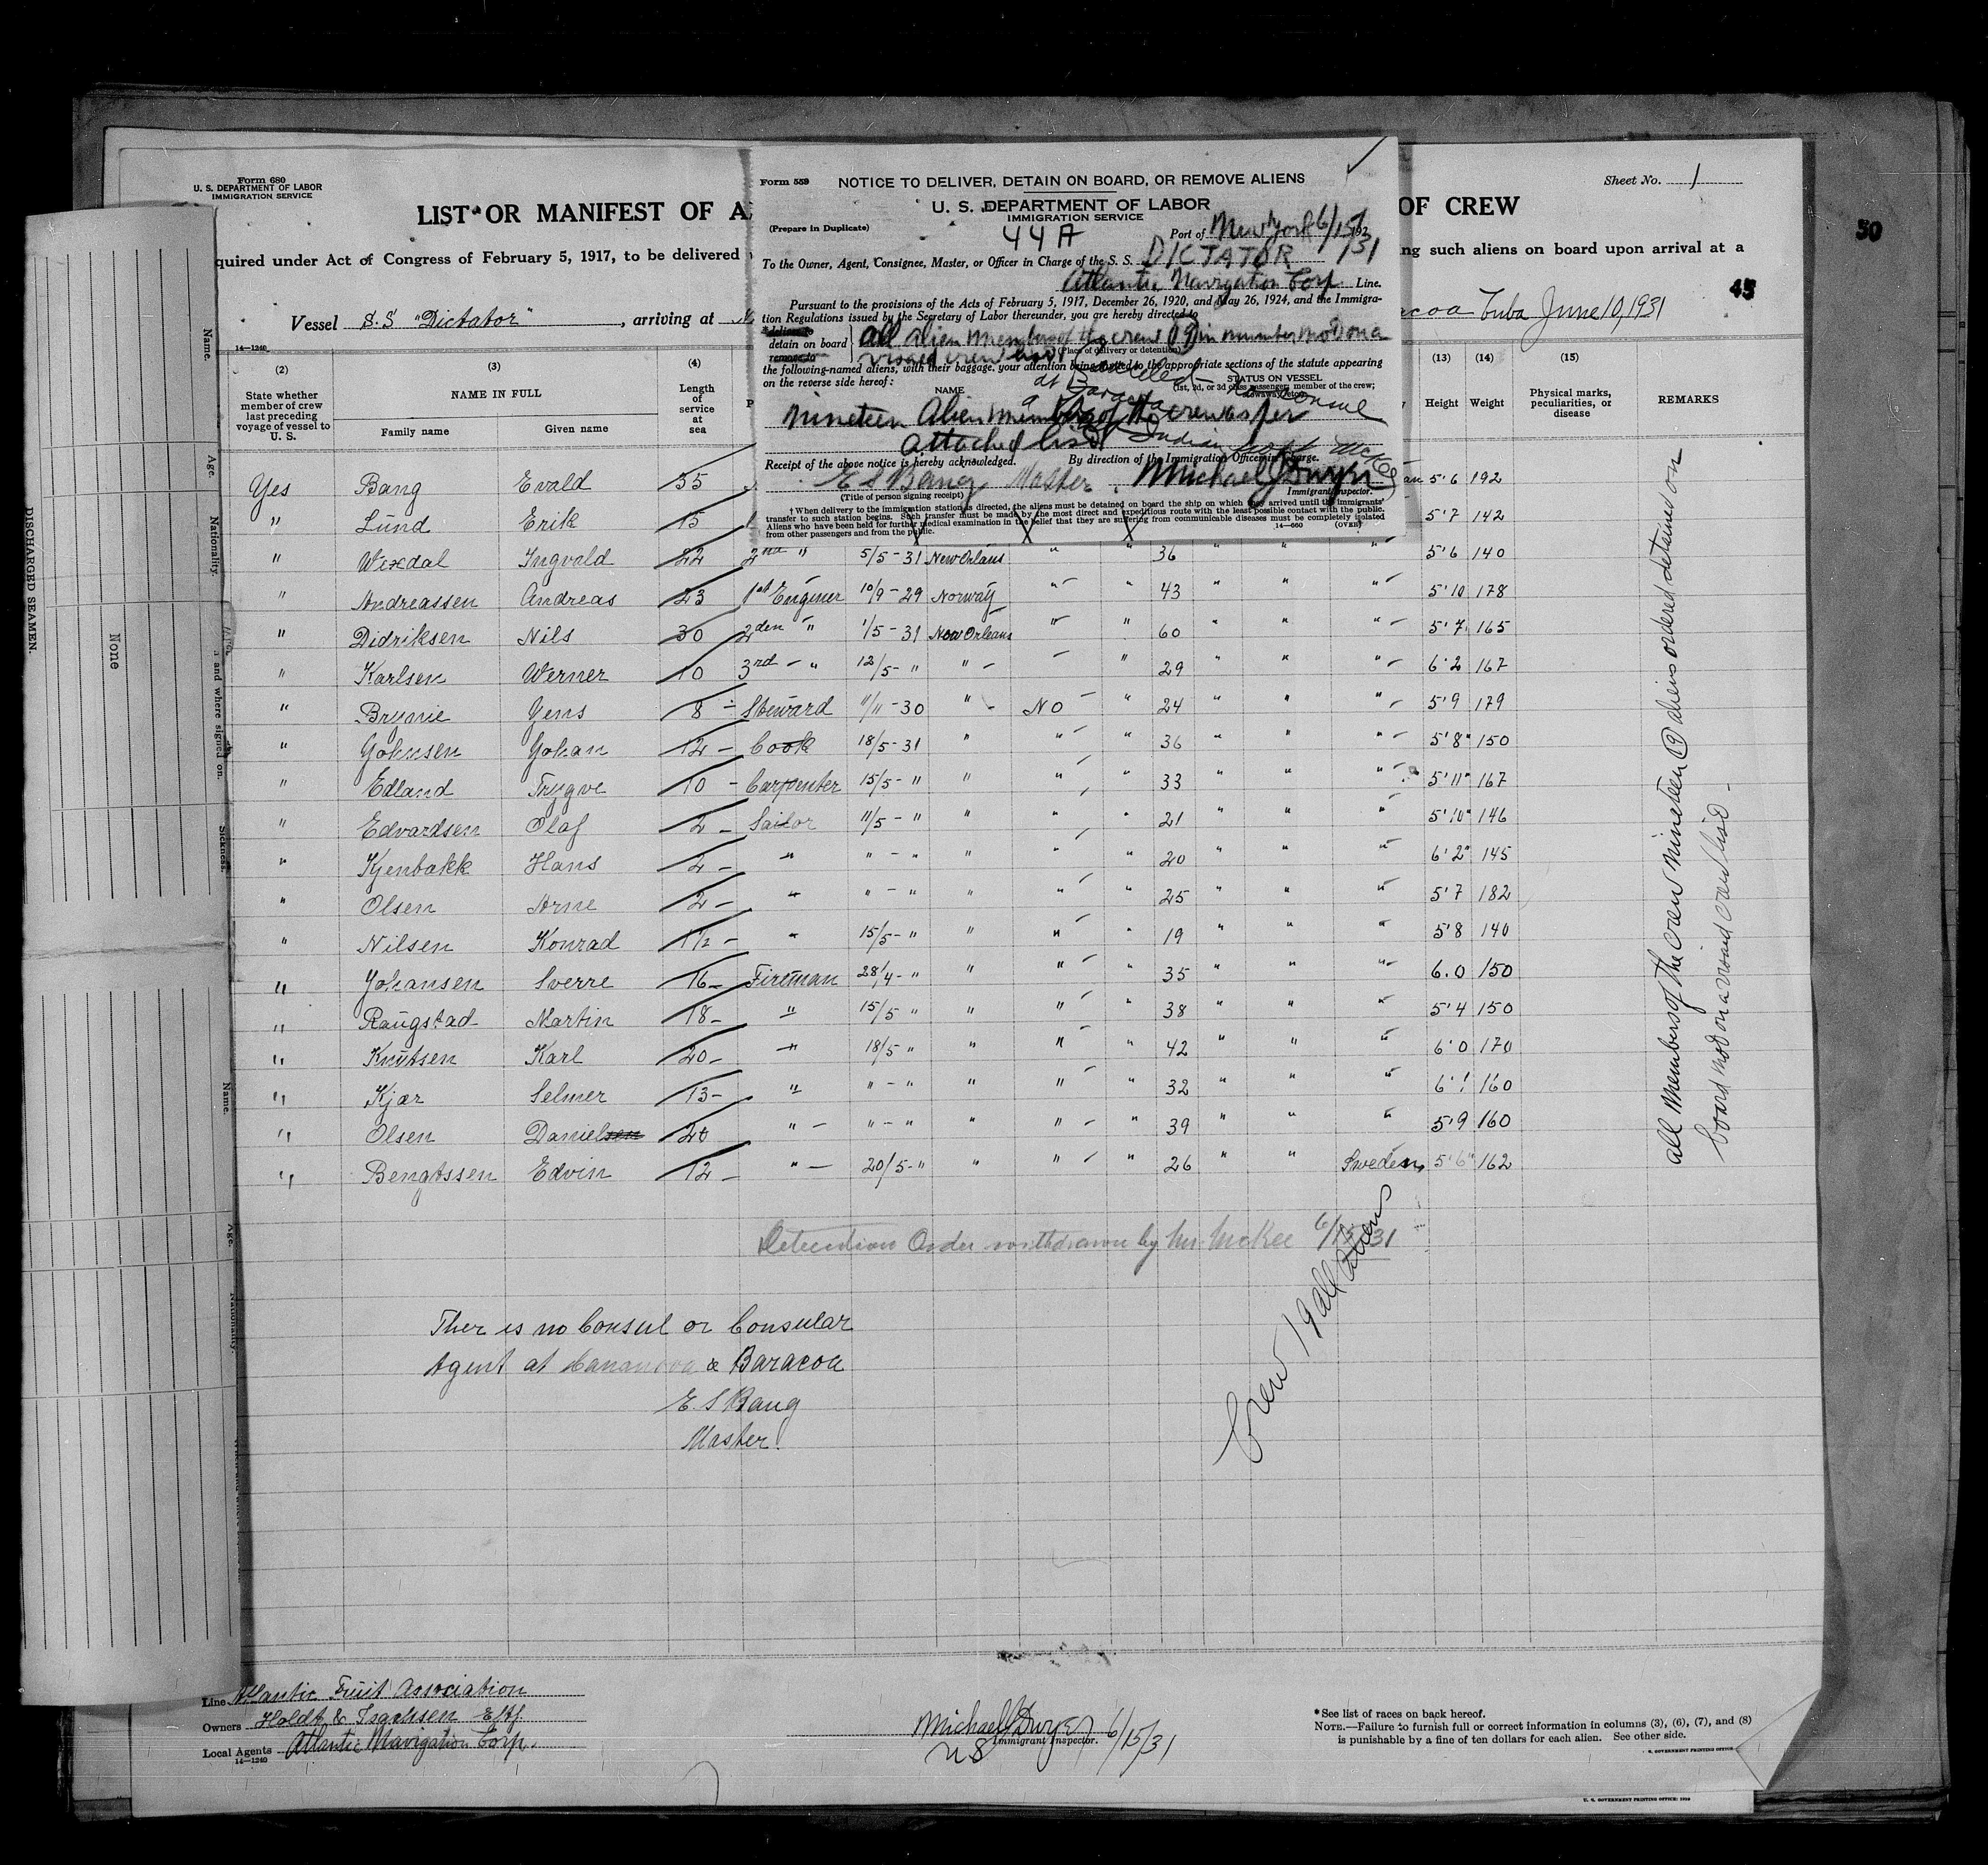 Form 680
U. S. DEPARTMENT OF LABOR
IMMIGRATION SERVICE
LIST OR MANIFEST OF A
OF CREW
Sheet No. 1
quired under Act of Congress of February 5, 1917, to be delivered
ng such aliens on board upon arrival at a
Vessel S.S "Dictator", arriving at
acoa Cuba June 10, 1931
50
45
Form 559 NOTICE TO DELIVER, DETAIN ON BOARD, OR REMOVE ALIENS
U. S. DEPARTMENT OF LABOR
IMMIGRATION SERVICE
(Prepare in Duplicate)
44 A
Port of New York 6/15/31
To the Owner, Agent, Consignee, Master, or Officer in Charge of the S. S. DICTATOR
Atlantic Navigation Corp. Line.
Pursuant to the provisions of the Acts of February 5, 1917, December 26, 1920, and May 26, 1924, and the Immigra-
tion Regulations issued by the Secretary of Labor thereunder, you are hereby directed to
*deliver to
detain on board
remove to
all alien members of the crew (19) in number not on a
visaed crew list
(Place of delivery or detention)
the following-named aliens, with their baggage, your attention being invited to the appropriate sections of the statute appearing
on the reverse side hereof:
NAME
STATUS ON VESSEL
(1st, 2d, or 3d class passenger; member of the crew;
nineteen Alien members of the crew as per
attached list
Receipt of the above notice is hereby acknowledged.
By direction of the Immigration Officer in Charge.
E S Bang Master
Michael J Dwyer
(Title of person signing receipt)
Immigrant Inspector.
† When delivery to the immigration station is directed, the aliens must be detained on board the ship on which they arrived until the immigrants'
transfer to such station begins. Such transfer must be made by the most direct and expeditious route with the least possible contact with the public.
Aliens who have been held for further medical examination in the belief that they are suffering from communicable diseases must be completely isolated
from other passengers and from the public.
14—660 (OVER)
14—1240
(2) (3) (4) (13) (14) (15)
State whether member of crew last preceding voyage of vessel to U. S.
NAME IN FULL
Family name Given name
Length of service at sea
Height Weight
Physical marks, peculiarities, or disease
REMARKS
Yes Bang Evald 35 5'6 192
" Lund Erik 15 5'7 142
" Wixdal Ingvald 22 2nd " 5/5-31 New Orleans " " 36 " " " 5'6 140
" Andreassen Andreas 23 1st Enginer 10/9-29 Norway " " 43 " " " 5'10 178
" Didriksen Nils 30 2den " 1/5-31 New Orleans " " 60 " " " 5'7 165
" Karlsen Werner 10 3rd - " 12/5- " " " 29 " " " 6'2 167
" Brynie Yens 8 Steward 11/11-30 " NO " 24 " " " 5'9 179
" Yohnsen Yohan 12 - Cook 18/5-31 " " " 36 " " " 5'8" 150
" Edland Trygve 10 - Carpenter 15/5- " " " " 33 " " " 5'11" 167
" Edvardsen Olaf 2 - Sailor 11/5- " " " " 21 " " " 5'10" 146
" Kjenbakk Hans 2 - " " - " " " " 20 " " " 6'2" 145
" Olsen Arne 2 - " " - " " " " 25 " " " 5'7 182
" Nilsen Konrad 1½ - " 15/5- " " " " 19 " " " 5'8 140
" Yohansen Sverre 16 - Fireman 28/4- " " " " 35 " " " 6.0 150
" Raugstad Martin 18 - " 15/5 " " " " 38 " " " 5'4 150
" Knutsen Karl 20 - " 18/5 " " " " 42 " " " 6'0 170
" Kjær Selmer 13 - " " - " " " " 32 " " " 6'1 160
" Olsen Danielsen 20 " - " - " " " " 39 " " " 5'9 160
" Bengtssen Edvin 12 - " - 20/5- " " " " 26 " " Sweden 5'6" 162
all members of the crew nineteen (19) aliens ordered detained on
board not on a visaed crew list -
Detention Order withdrawn by Mr. McKee 6/15/31
Crew 19 all aliens
Ther is no Consul or Consular
Agent at & Baracoa
E. S Bang
Master.
Line Atlantic Fruit Association
Owners Holdt & Isachsen
Local Agents Atlantic Navigation Corp.
14—1240
Michael J Dwyer 6/15/31
Immigrant Inspector.
*See list of races on back hereof.
NOTE.—Failure to furnish full or correct information in columns (3), (6), (7), and (8)
is punishable by a fine of ten dollars for each alien. See other side.
U. S. GOVERNMENT PRINTING OFFICE
DISCHARGED SEAMEN.
None
Name.
Age.
Nationality.
and where signed on.
Sickness.
Name.
Age.
Nationality.